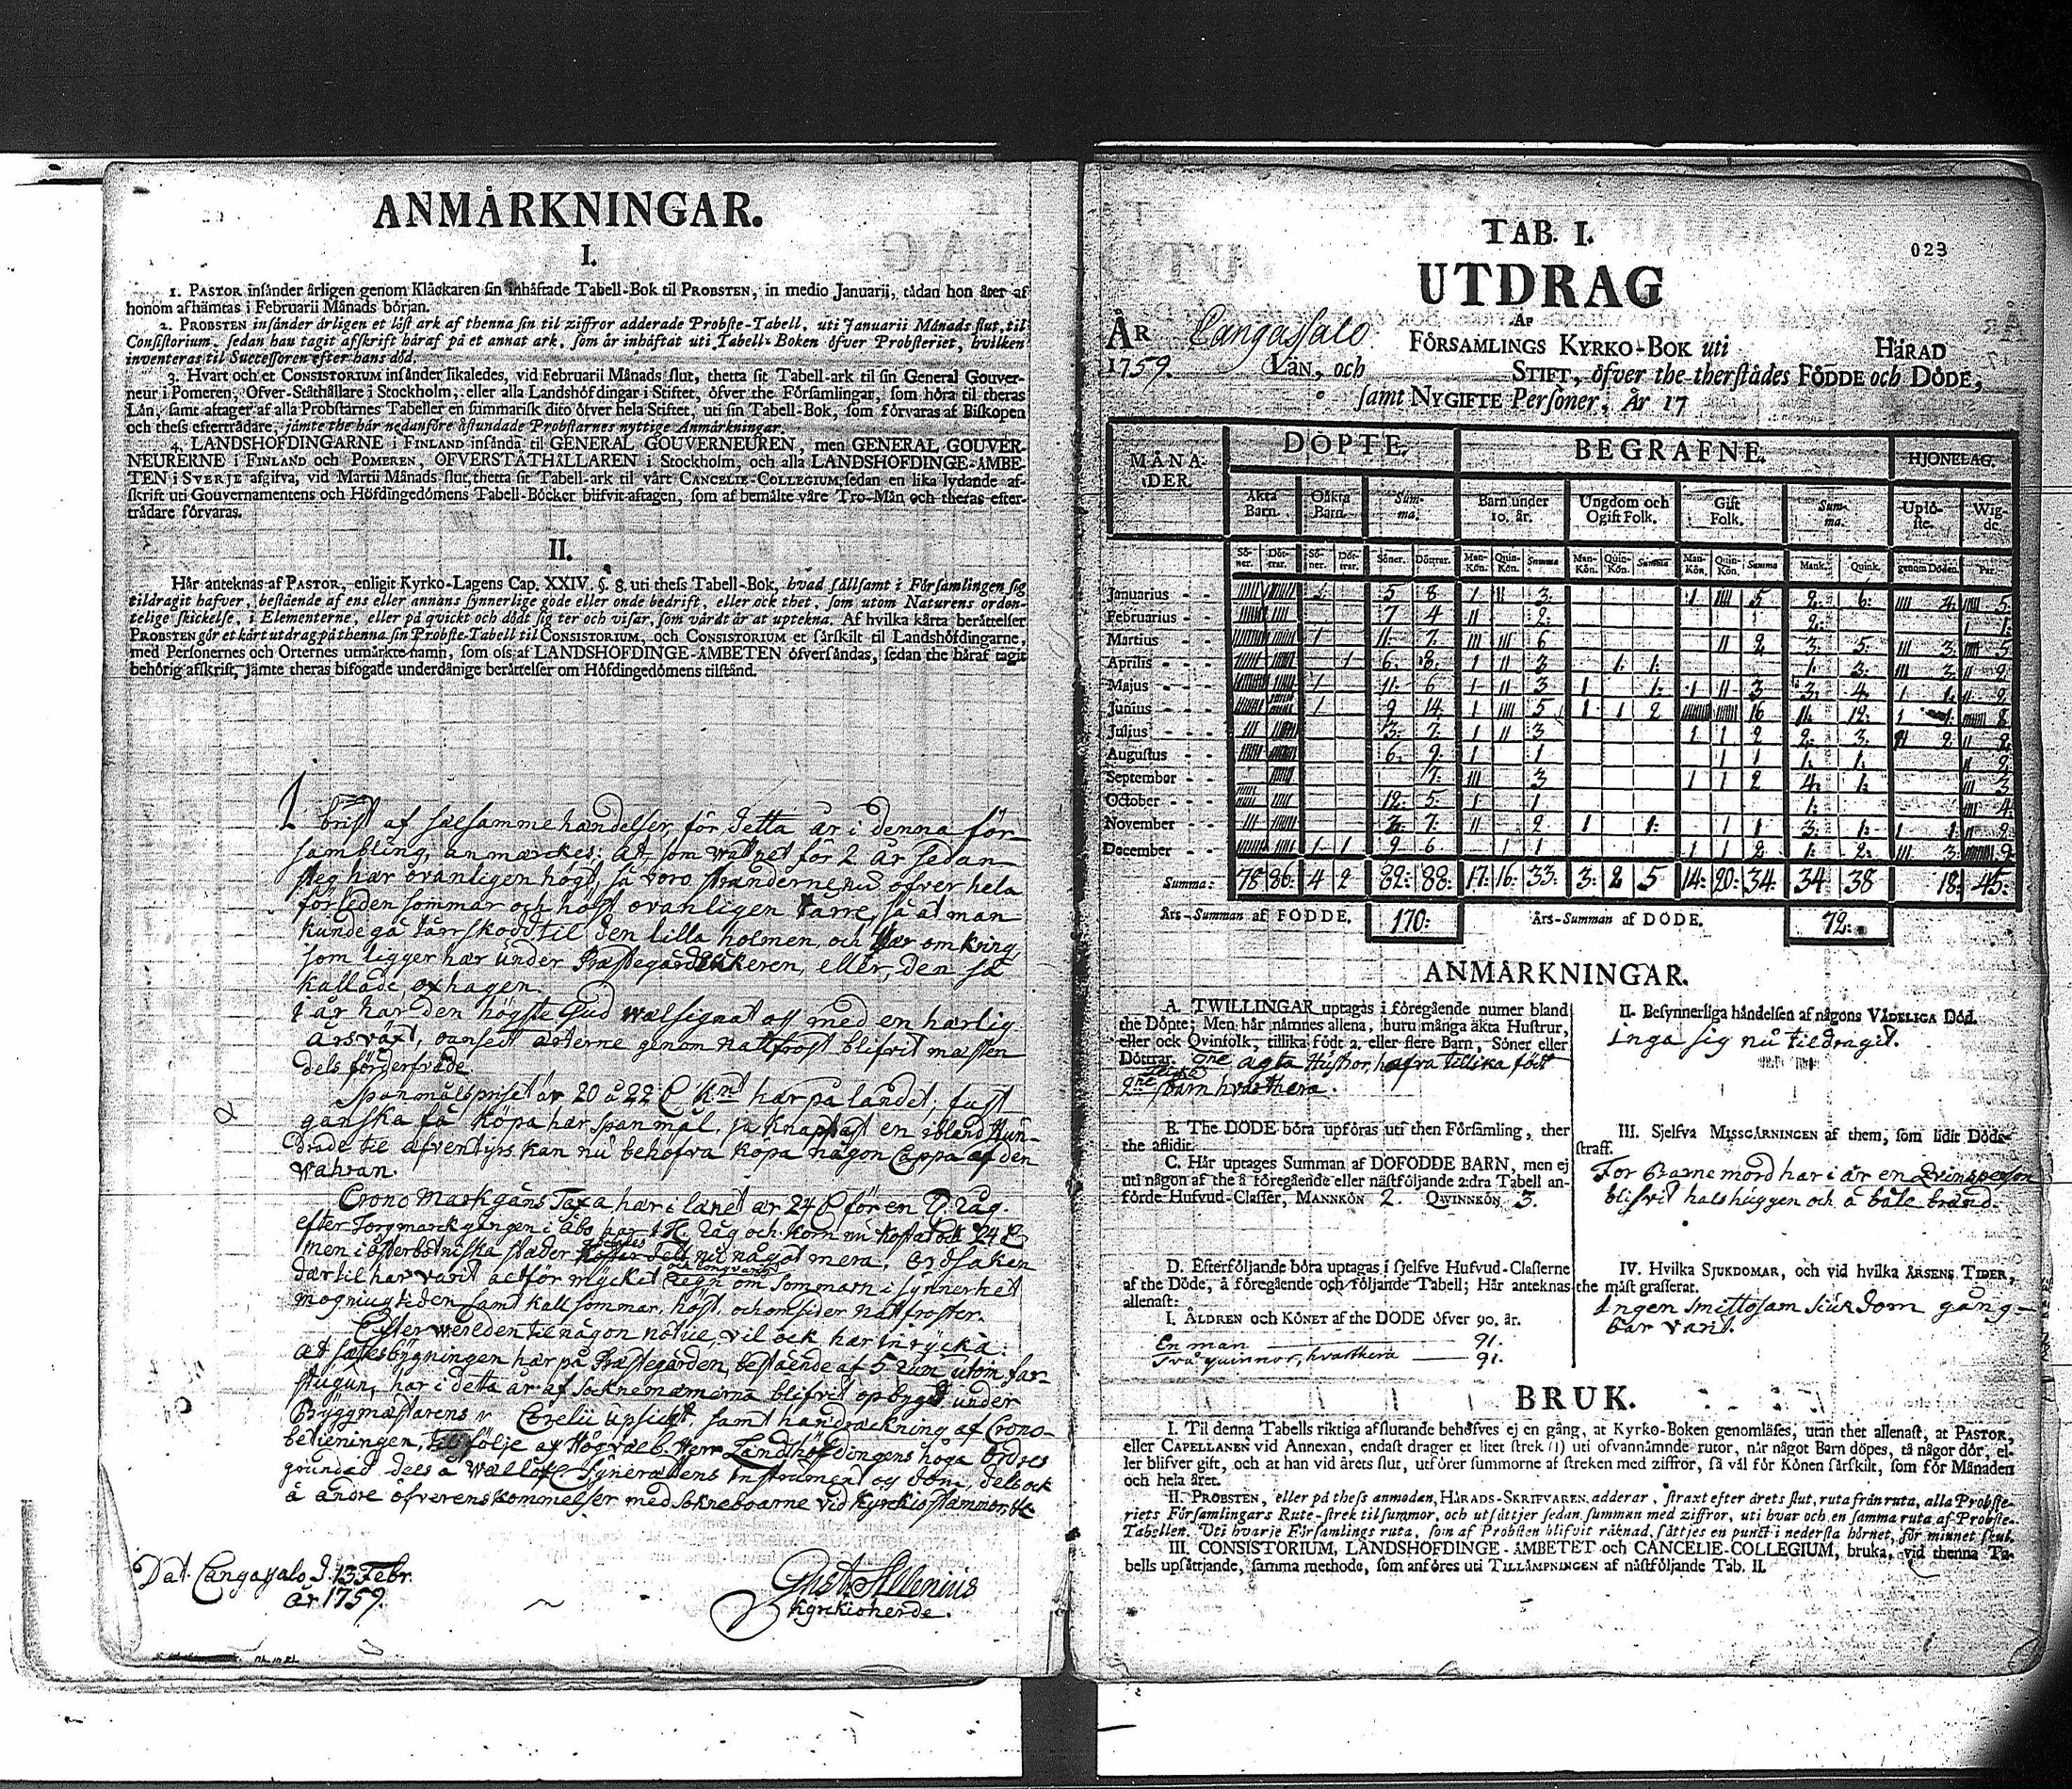 ANMÄRKNINGAR.
I.
1. PASTOR insänder årligen genom Klåckaren sin inhäftade Tabell-Bok til PROBSTEN, in medio Januarii, tådan hon åter af
honom afhämtas i Februarii Månads början.
2. PROBSTEN insänder årligen et löst ark af thenna sin til ziffror adderade Probste-Tabell, uti Januarii Månads slut, til
Consistorium, sedan han tagit afskrift häraf på et annat ark, som är inhäftat uti Tabell-Boken öfver Probsteriet, hvilken
inventeras til Successoren efter hans död.
3. Hvart och et CONSISTORIUM insänder likaledes, vid Februarii Månads slut, thetta sit Tabell-ark til sin General Gouver-
neur i Pomeren, Öfver-Ståthållare i Stockholm, eller alla Landshöfdingar i Stiftet, öfver the Församlingar, som höra til theras
Län, samt aftager af alla Probstarnes Tabeller en summarisk dito öfver hela Stiftet, uti sin Tabell-Bok, som förvaras af Biskopen
och thess efterträdare, jämte the här nedanföre åstundade Probstarnes nyttige Anmärkningar.
4. LANDSHÖFDINGARNE i FINLAND insända til GENERAL GOUVERNEUREN, men GENERAL GOUVER-
NEURERNE i FINLAND och POMEREN, ÖFVERSTÅTHÅLLAREN i Stockholm, och alla LANDSHÖFDINGE-ÄMBE-
TEN i SVERJE afgifva, vid Martii Månads slut, thetta sit Tabell-ark til vårt CANCELIE-COLLEGIUM, sedan en lika lydande af-
skrift uti Gouvernamentens och Höfdingedömens Tabell-Böcker blifvit aftagen, som af bemälte våre Tro-Män och theras efter-
trädare förvaras.
II.
Här anteknas af PASTOR, enligit Kyrko-Lagens Cap. XXIV. §. 8. uti thess Tabell-Bok, hvad sällsamt i Församlingen sig
tildragit hafver, bestående af ens eller annans synnerlige gode eller onde bedrift, eller ock thet, som utom Naturens orden-
telige skickelse, i Elementerne, eller på quickt och dödt sig ter och visar, som värdt är at uptekna. Af hvilka kårta berättelser
PROBSTEN gör et kårt utdrag på thenna sin Probste-Tabell til CONSISTORIUM, och CONSISTORIUM et särskilt til Landshöfdingarne,
med Personernes och Orternes utmärkte namn, som oss af LANDSHÖFDINGE-ÄMBETEN öfversändas, sedan the häraf tagit
behörig afskrift, jämte theras bifogade underdånige berättelser om Höfdingedömens tilstånd.
I brist af sælsamme händelser, för detta år i denna för-
sambling, anmærckes; at, som watnet för 2 år sedan
steg här ovanligen högt, så voro stränderne nu öfver hela
förleden sommar och höst ovanligen torre, så at man
kunde gå torrskodd til den lilla holmen, och der omkring,
som ligger här under Præstegårds åkeren, eller, den så
kallade oxhagen.
I år har den högste Gud wälsignat oss med en härlig
årsväxt, oansedt ärterne genom nattfrost blifvit mæsten
dels förderfvade.
Spanmålspriset är 20 à 22 kmt här på landet, fast
ganska få köpa här spanmål, ja knappast en ibland hun-
drade til äfventyrs kan nu behöfva köpa någon Cappa af den
wahran.
Crono Markgångs Taxa här i länet är 24 för en råg.
efter Torgmarckgången i Åbo har råg och korn nu kostat ock 24
men i österbotniska städer nu något mera, ordsaken
dærtil har varit alt för mycket regn om sommarn i synnerhet
mogningstiden, samt kall sommar, höst, och omsider nattfroster.
Efter werelden til någon notice, vil ock här inryckia:
at sätesbygningen här på Præstegården, bestående af 5 rum utom far-
stugun, har i detta år af socknemænnerna blifvit opbygd under
Byggmästarens Corelii upsicht, samt handræckning af Crono-
betieningen, til följe af Högvälb. Herr Landshöfdingens höga ordres
grundad dels å Wällofl. Synerættens Instrument och dom, dels ock
å andre öfverenskommelser med Sokneboarne vid Kyrckiostämmor, etc
Dat. Cangasalo d. 13 Febr.
år 1759.
Gust. Allenius
Kyrckioherde.
023
TAB. I.
UTDRAG
AF
ÅR Cangassalo FÖRSAMLINGS KYRKO-BOK uti HÄRAD
1759. LÄN, och STIFT, öfver the therstädes FÖDDE och DÖDE,
samt NYGIFTE Personer, År 17
MÅNA-DER. DÖPTE. BEGRAFNE. HJONELAG.
Äkta Barn. Oäkta Barn. Summa. Barn under 10. år. Ungdom och Ogift Folk. Gift Folk. Summa. Uplöste. Wigde.
Söner. Döttrar. Söner. Döttrar. Söner. Döttrar. Man-Kön. Quin-Kön. Summa Man-Kön. Quin-Kön. Summa Man-Kön. Quin-Kön. Summa Mank. Quink. genom Döden. Par.
Januarius - - 5 8 1 II 3 1 IIII 5 2: 6: IIII 4: 5
Februarius - - 7 4 II 2: 2: 1 1:
Martius - - 1 11: 7: III III 6 II 2 3: 5: III 3: 5
Aprilis - - 1 6: 8: 1 II 3 1: 1: 1: 3: III 3: II 2
Majus - - 1 11: 6 1 II 3 1 1: 1 II 3 3: 4: 1 1: II 2
Junius - - 1 9 14: 1 IIII 5 1 1 2 16 11: 12: 1 1: 8
Julius - - III 3: 7: 1 II 3 1 1 2 2: 3: II 2 II 2
Augustus - - 6: 9: 1 1 1 1 1: 1: II 2
September - - 7: III 3 1 1 2 4: 1: III 3
October - - 12: 5: 1 1 1: IIII 4
November - - III 3: 7: II 2 1 1: 1 1 3: 1: 1 1: II 2
December - - 1 1 9 6 1 1 1 1 2 1: 2: III 3: 9
Summa: 78 86 4 2 82: 88: 17: 16: 33: 3: 2 5 14: 20: 34: 34 38 18: 45:
Års-Summan af FÖDDE. 170: Års-Summan af DÖDE. 72:
ANMÄRKNINGAR.
A. TWILLINGAR uptagas i föregående numer bland
the Döpte; Men här nämnes allena, huru många äkta Hustrur,
eller ock Qvinfolk, tillika födt 2. eller flere Barn, Söner eller
Döttrar. 2ne ägta Hustror, hafva tillika födt
2ne barn hvarthera.
B. The DÖDE böra upföras uti then Församling, ther
the aflidit.
C. Här uptages Summan af DÖFÖDDE BARN, men ej
uti någon af the å föregående eller nästföljande 2:dra Tabell an-
förde Hufvud-Classer, MANNKÖN 2. QWINNKÖN 3.
D. Efterföljande böra uptagas i sjelfve Hufvud-Classerne
af the Döde, å föregående och följande Tabell; Här anteknas
allenast:
I. ÅLDREN och KÖNET af the DÖDE öfver 90. år.
En man 91.
Två quinnor, hvarthera 91.
II. Besynnerliga händelsen af någons VÅDELIGA Död.
Inga sig nu tildragit.
III. Sjelfva MISSGÄRNINGEN af them, som lidit Döds-
straff.
För Barnemord har i år en Qvinsperson
blifvit halshuggen och å båle bränd.
IV. Hvilka SJUKDOMAR, och vid hvilka ÅRSENS TIDER,
the mäst grasserat.
Ingen smittosam siukdom gång-
bar varit.
BRUK.
I. Til denna Tabells riktiga afslutande behöfves ej en gång, at Kyrko-Boken genomläses, utan thet allenast, at PASTOR,
eller CAPELLANEN vid Annexan, endast drager et litet strek (I) uti ofvannämnde rutor, når något Barn döpes, tå någor dör, el-
ler blifver gift, och at han vid årets slut, utförer summorne af streken med ziffror, så väl för Könen särskilt, som för Månaden
och hela året.
II. PROBSTEN, eller på thess anmodan, HÄRADS-SKRIFVAREN, adderar, straxt efter årets slut, ruta från ruta, alla Probste-
riets Församlingars Rute-strek til summor, och utsättjer sedan summan med ziffror, uti hvar och en samma ruta af Probste-
Tabellen. Uti hvarje Församlings ruta, som af Probsten blifvit räknad, sättjes en punct i nedersta hörnet, för minnet skul.
III. CONSISTORIUM, LANDSHÖFDINGE-ÄMBETET och CANCELIE-COLLEGIUM, bruka, vid thenna Ta-
bells upsättjande, samma methode, som anföres uti TILLÄMPNINGEN af nästföljande Tab. II.